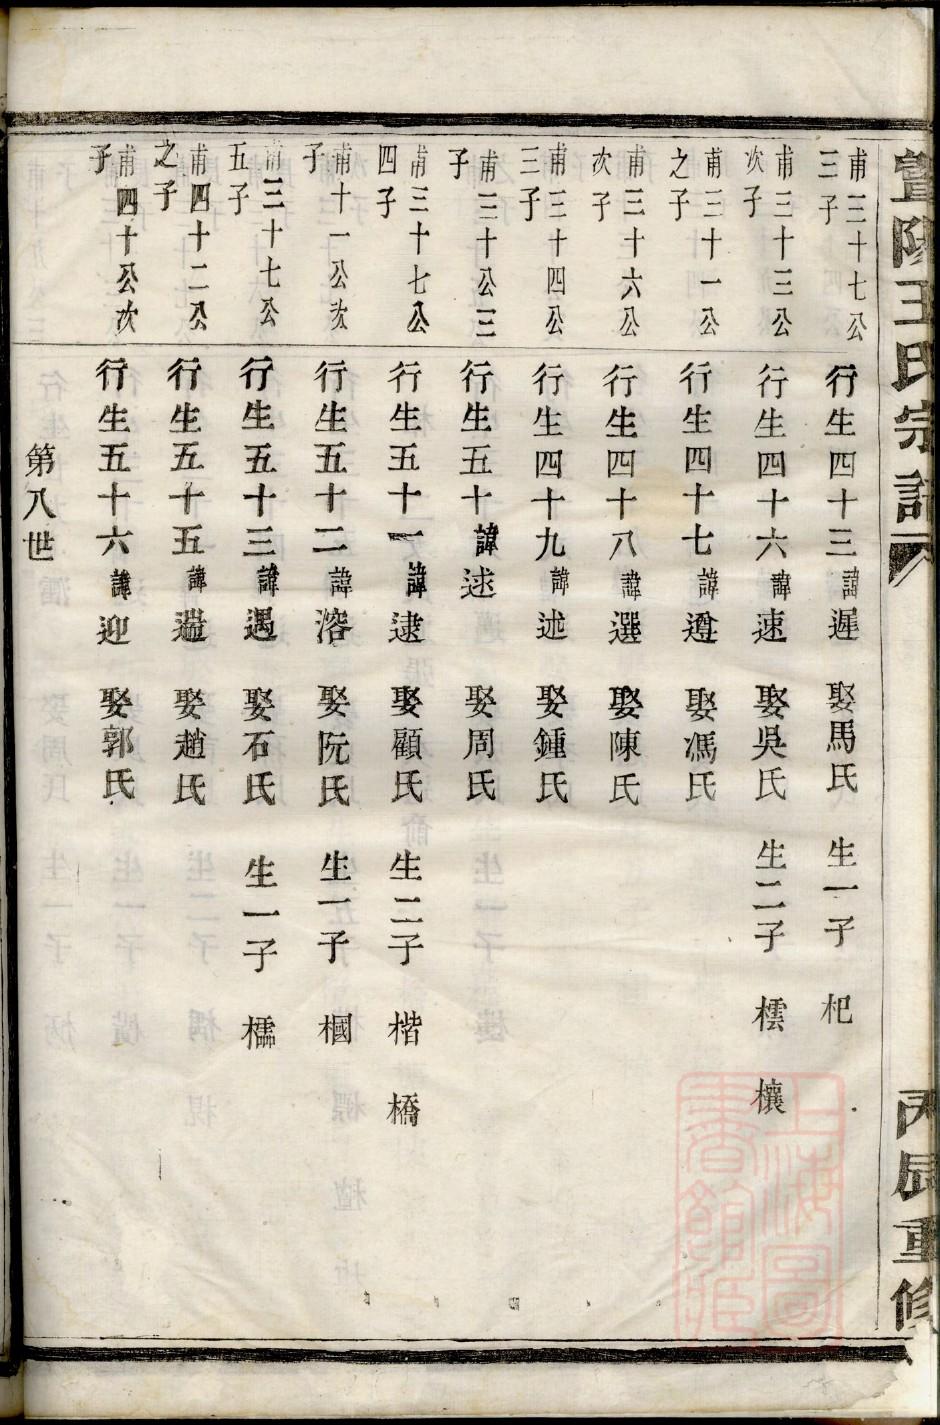 暨陽王氏宗譜
丙辰重修
甫三十七公三子
行生四十三諱遲 娶馬氏 生一子 杞
甫三十三公次子
行生四十六諱速 娶吳氏 生二子 橒 欀
甫三十一公之子
行生四十七諱遵 娶馮氏
甫三十六公次子
行生四十八諱選 娶陳氏
甫三十四公三子
行生四十九諱述 娶鍾氏
甫三十公三子
行生五十諱逑 娶周氏
甫三十七公四子
行生五十一諱逮 娶顧氏 生二子 楷 橋
甫十一公次子
行生五十二諱溶 娶阮氏 生一子 棝
甫三十七公五子
行生五十三諱遇 娶石氏 生一子 檽
甫四十二公之子
行生五十五諱 娶趙氏
甫四十公次子
行生五十六諱迎 娶郭氏
第八世
上海圖書館